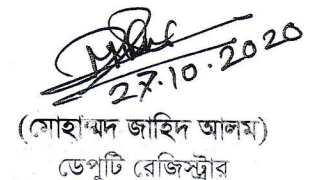 27.10.2020
(মোহাম্মদ জাহিদ আলম)
ডেপুটি রেজিস্ট্রার